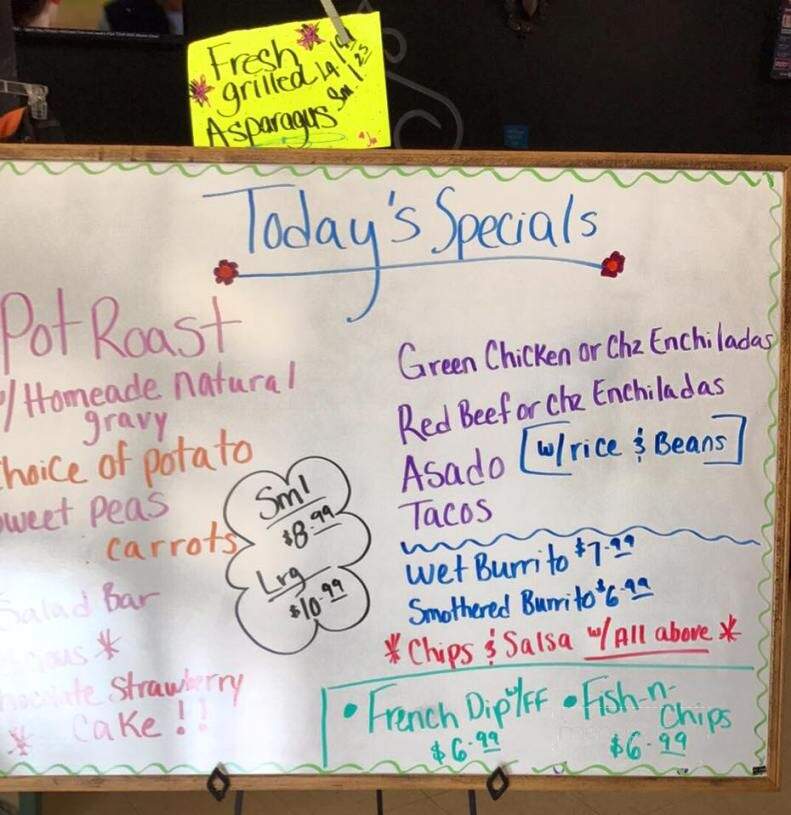 Fresh
grilled
Asparagus
Sm. 1.25
Today's Specials
Pot Roast
w/ Homeade natural
gravy
Choice of potato
Sweet Peas
carrots
Salad Bar
Chocolate Strawberry
Cake!!
Sml
$8.99
Lrg
$10.99
Green Chicken or Chz Enchiladas
Red Beef or Chz Enchiladas
Asado [w/rice & Beans]
Tacos
Wet Burrito $7.99
Smothered Burrito $6.99
* Chips & Salsa w/All above *
• French Dip w/FF
$6.99
• Fish-n-
Chips
$6.99